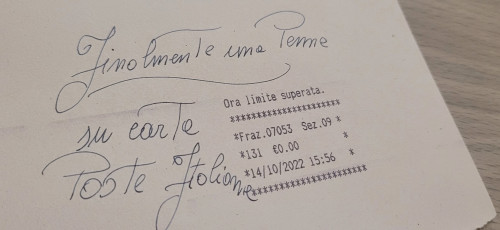 Finalmente una Penna
su carta
Poste Italiane
Ora limite superata.
**********************
*Fraz.07053 Sez.09 *
*131 €0.00 *
*14/10/2022 15:56 *
**********************